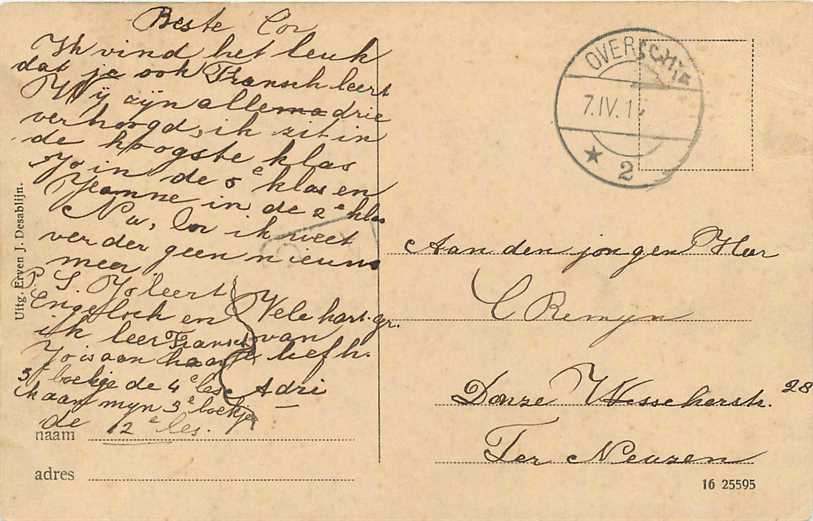 Beste Cor
Ik vind het leuk
dat je ook Fransch leert
Wij zijn allema drie
verhoogd, ik zit in
de hoogste klas
Jo in de 5e klas en
Jeanne in de 2e klas
Nu, Cor ik weet
verder geen nieuws
meer
P.S. Jo leert
Engelsch en
ik leer Fransch
Jo is aan haar
3 boekje de 4e les
ik aan mijn 3e boekje
de 12e les.
Vele hart. gr.
van
je liefh.
Adri
naam
adres
Uitg. Erven J. Desablijn.
OVERSCHIE
7.IV.1
★ 2
Aan den jongen Heer
C Remyn
Donze Visscherstr. 28
Ter Neuzen
16 25595